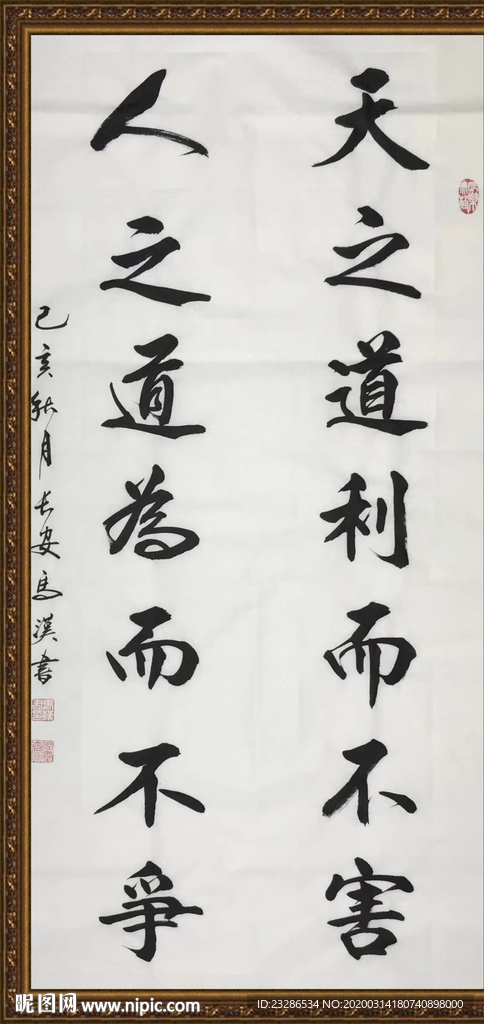 天之道利而不害
人之道為而不爭
己亥秋月長安馬漢書
昵图网 www.nipic.com
ID:23286534 NO:20200314180740898000